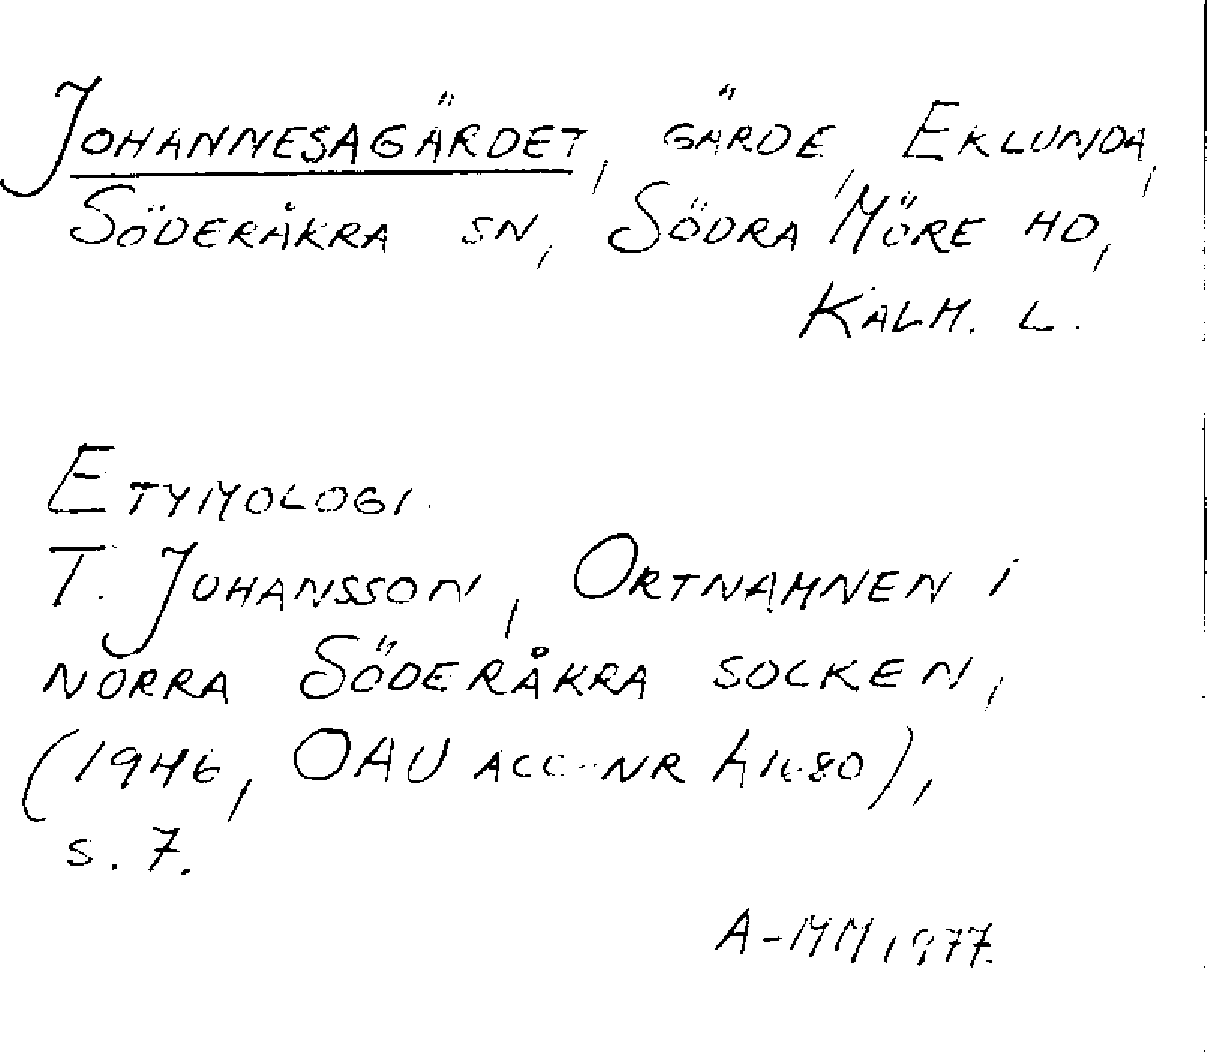 JOHANNESAGÄRDET, GÄRDE, EKLUNDA,
SÖDERÅKRA SN, SÖDRA MÖRE HD,
KALM. L.
ETYMOLOGI.
T. JOHANSSON, ORTNAMNEN I
NORRA SÖDERÅKRA SOCKEN,
(1946, OAU ACC-NR
s. 7.
A-MM 1977.